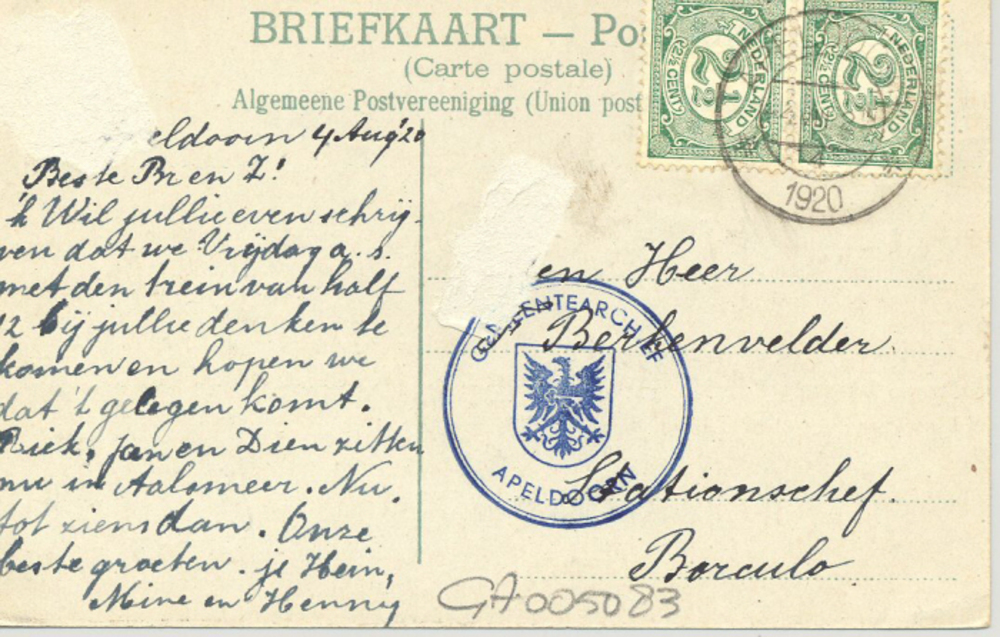 BRIEFKAART – Po
(Carte postale)
Algemeene Postvereeniging (Union post
2½ CENT NEDERLAND
2½ CENT NEDERLAND
1920
eldoorn 4 Aug '20
Beste Br en Z!
'k Wil jullie even schrij-
ven dat we Vrijdag a.s.
met den trein van half
12 bij jullie denken te
komen en hopen we
dat 't gelegen komt.
Riek, Jan en Dien zitten
nu in Aalsmeer. Nu,
tot ziens dan. Onze
beste groeten. je Hein,
Mine en Henny
en Heer
Berkenvelder
Stationschef.
Borculo.
GEMEENTEARCHIEF
APELDOORN
GA005083